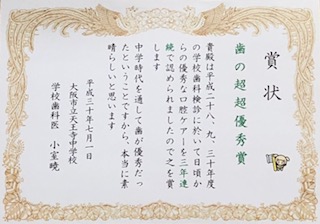 賞状
歯の超超優秀賞
貴殿は平成二十八、九、三十年度
の学校歯科検診に於いて日頃か
らの優秀な口腔ケアーを三年連
続で認められましたので之を賞
します
中学時代を通して歯が優秀だっ
たということですから、本当に素
晴らしいと思います
平成三十年七月一日
大阪市立天王寺中学校
学校歯科医 小室暁